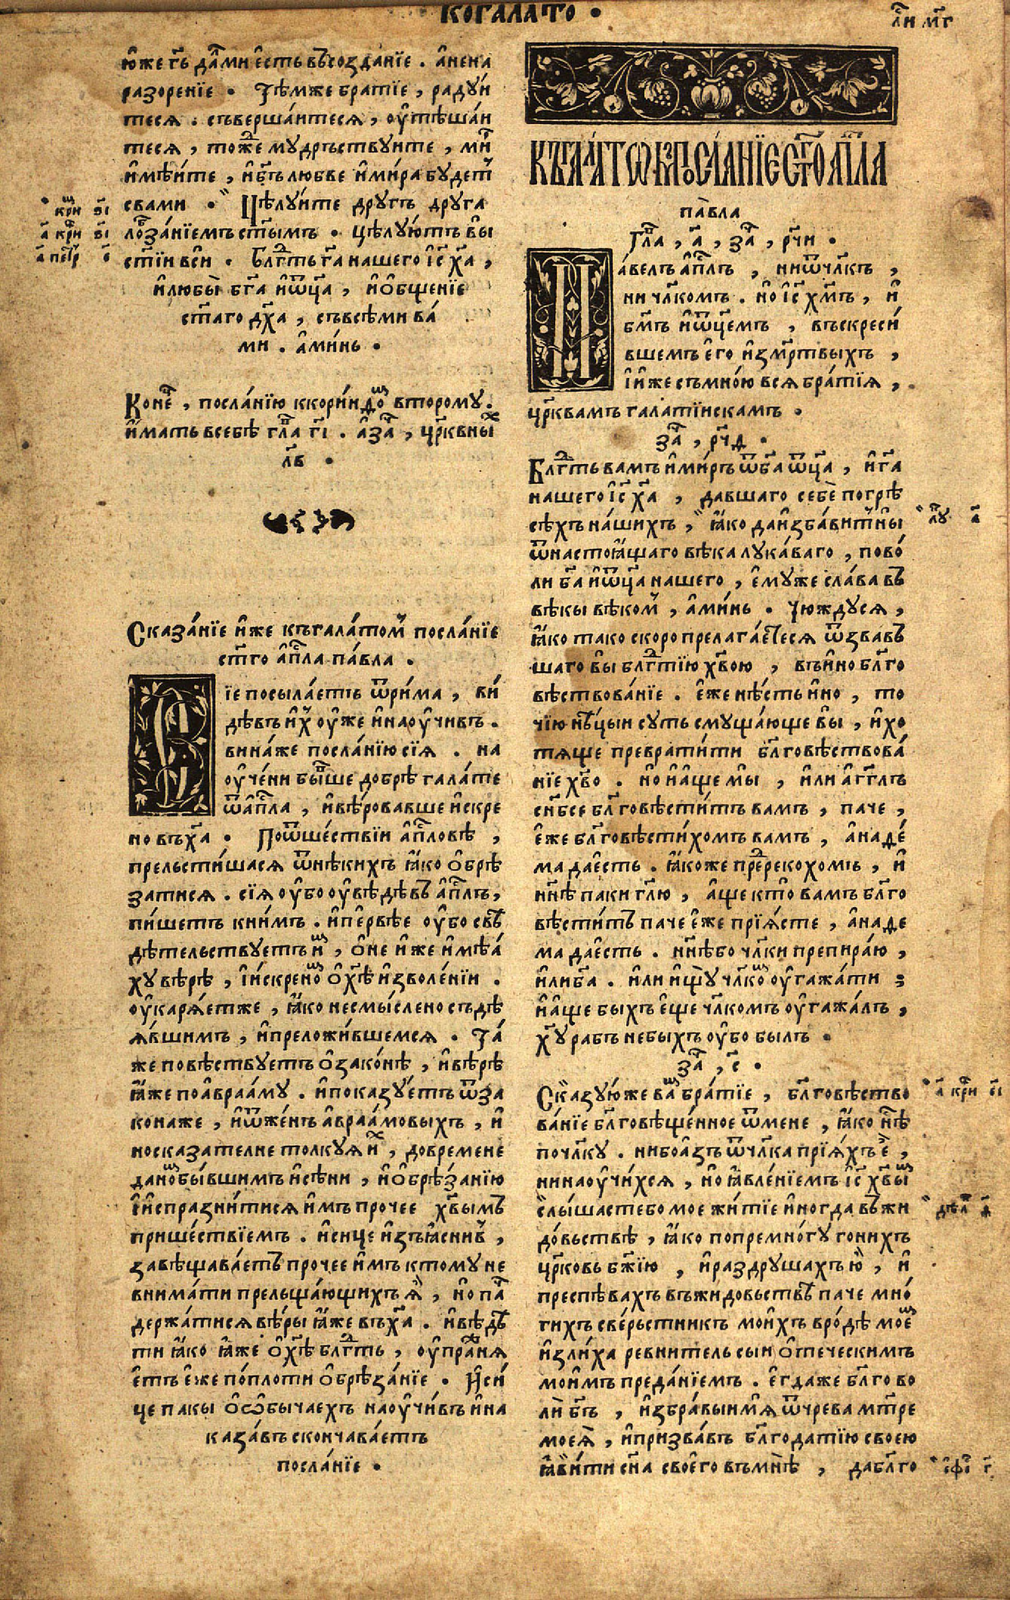 КОГАЛАТО .
ли м҃г
юже гь дами есть въсозданїе . анена
разоренїе . Тѣмже братїе , радуи
теся . съвершаитеся , оутѣшаи
теся , тоже мудрьствуите , ми
имѣите , и б҃ъ любве и мира будет
свами . Цѣлуите другъ друга
лобзанїемъ ст҃ымъ . цѣлуютъ вы
ст҃їи вси . Блг҃ть га нашего і҃с х҃а ,
илюбы б҃га иѿц҃а , иобщенїе
ст҃аго дх҃а , съвсѣми ва
ми . аминь .
Коне , посланїю ккоринѳо второму .
имать всебѣ гла г҃і . аза , црквны
л҃в .
Сказанїе иже къгалатом посланїе
ст҃го ап҃ла павла .
Сїе посылаеть ѿрима , ви
дѣвъ их оуже инаоучивъ .
винаже посланїю сїя . на
оучени бывше добрѣ галате
ѿап҃ла , ивѣровавше искре
но въх҃а . Поѿшествїи ап҃ловѣ ,
прельстишася ѿнѣкихъ яко обрѣ
затися . сїя оубо оувѣдѣвъ ап҃лъ ,
пишетъ книмъ . ипервѣе оубо свѣ
дѣтельствуетъ и , оне иже имѣа
ху вѣрѣ , їискрено охѣ изволенїи .
оукаряетже , яко несмыслено съдѣ
явшимъ , ипреложившемся . Та
же повѣствуетъ озаконѣ , ивѣрѣ
яже поаврааму . ипоказуетъ ѿза
конаже , иѿженъ авраамовыхъ , и
носказателне толкуя и , довремене
данобывшимъ исѣни , иобрѣзанїю
їиспразнитися имъ прочее х҃вымъ
пришествїемъ . исице изъяснив ,
завѣщаваетъ прочее имъ ктому не
внимати прельщающихъ я , но па
держатися вѣры яже въх҃а . ивѣдѣ
ти яко яже охѣ блг҃ть , оупраня
етъ еже поплоти обрѣзанїе . Иси
це пакы оѡбычаехъ наоучивъ ина
казавъ скончаваетъ
посланїе .
КЪГАЛАТѠМ ПОСЛАНЇЕ СТ҃ГО АП҃ЛА
павла
Гла , а҃ , за , р҃ч и .
Павелъ ап҃лъ , ниѿчл҃къ ,
ни чл҃комъ . но і҃с х҃мъ , и
б҃мъ иѿц҃емъ , въскреси
вшемъ его измртвыхъ ,
ї иже съмною вся братїя ,
црквамъ галатїискамъ .
за , р҃ч д .
Блг҃ть вамъ имиръ ѿб҃а ѿц҃а , иг҃а
нашего і҃с х҃а , давшаго себѐ погрѣ
сѣхъ нашихъ , яко даизбавитны
ѿнастоящаго вѣка лукаваго , пово
ли б҃а иѿц҃а нашего , емуже слава въ
вѣкы вѣком , аминь . Чюждуся ,
яко тако скоро прелагаетеся ѿзвавъ
шаго вы блг҃тїю х҃вою , въино бл҃го
вѣствованїе . еже нѣсть ино , то
чїю нѣцыи суть смущающе вы , ихо
тяще превратити бл҃говѣствова
нїе х҃во . но иаще мы , или агг҃лъ
сн҃бсе бл҃говѣститъ вамъ , паче ,
еже бл҃говѣстихомъ вамъ , анаде
ма даесть . якоже пререкохомъ , и
нн҃ѣ паки гл҃ю , аще кто вамъ бл҃го
вѣститъ паче еже прїясте , анаде
ма даесть . нн҃ѣбо чл҃ки препираю ,
илиб҃а . или ищу чл҃ко оугажати ;
иаще быхъ еще чл҃комъ оугажалъ ,
х҃у рабъ небыхъ оубо былъ .
за , с҃ .
Сказуюже ва братїе , бл҃говѣство
ванїе бл҃говѣщенное ѿмене , яко нѣ
почл҃ку . нибоазъ ѿчл҃ка прїяхъ е ,
нинаоучихся , но явленїемъ і҃с х҃вы
слышастебо мое житїе иногда въжи
довьствѣ , яко попремногу гонихъ
ц҃рковь б҃жїю , ираздрушахъ ю , и
преспѣвахъ въжидовьствѣ паче мно
гихъ сверьстникъ моихъ вродѣ мое
излиха ревнитель сыи отеческимъ
моимъ преданїемъ . егдаже бл҃гово
ли б҃ъ , избравыимя ѿчрева м҃тре
моея , ипризвавъ бл҃годатїю своею
явити сн҃а своего въмнѣ , дабл҃го
кри вї
а кри ѕї
а петр е
лу а
а кри еї
дѣа
ефі г